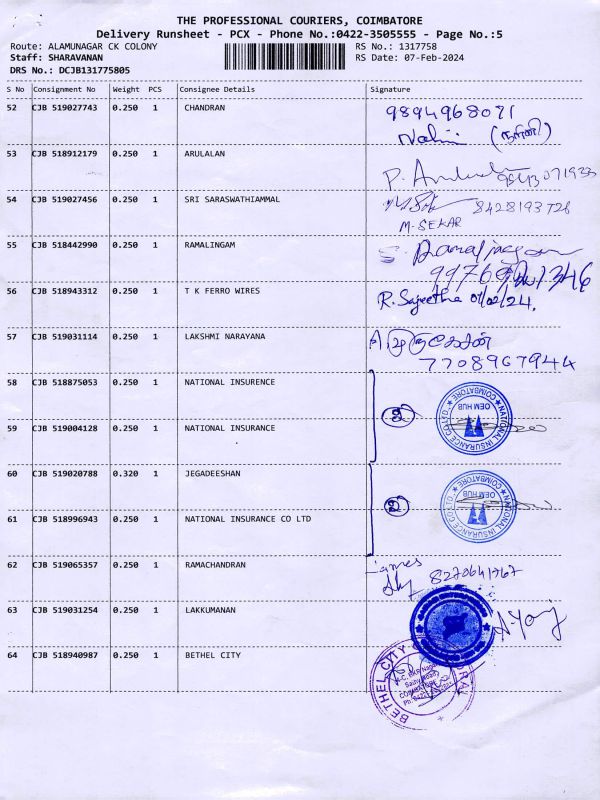 THE PROFESSIONAL COURIERS, COIMBATORE
Delivery Runsheet - PCX - Phone No.:0422-3505555 - Page No.:5
Route: ALAMUNAGAR CK COLONY RS No.: 1317758
Staff: SHARAVANAN RS Date: 07-Feb-2024
DRS No.: DCJB131775805
S No Consignment No Weight PCS Consignee Details Signature
52 CJB 519027743 0.250 1 CHANDRAN 9894968071
53 CJB 518912179 0.250 1 ARULALAN
54 CJB 519027456 0.250 1 SRI SARASWATHIAMMAL 8428193726
M. SEKAR
55 CJB 518442990 0.250 1 RAMALINGAM
56 CJB 518943312 0.250 1 T K FERRO WIRES R. Sajeetha 07/02/24.
57 CJB 519031114 0.250 1 LAKSHMI NARAYANA
7708967944
58 CJB 518875053 0.250 1 NATIONAL INSURENCE
59 CJB 519004128 0.250 1 NATIONAL INSURANCE 2
NATIONAL INSURANCE CO LTD COIMBATORE
OEM HUB
60 CJB 519020788 0.320 1 JEGADEESHAN
61 CJB 518996943 0.250 1 NATIONAL INSURANCE CO LTD 2
NATIONAL INSURANCE CO LTD COIMBATORE
OEM HUB
62 CJB 519065357 0.250 1 RAMACHANDRAN James
8270641767
63 CJB 519031254 0.250 1 LAKKUMANAN
64 CJB 518940987 0.250 1 BETHEL CITY
BETHEL CITY